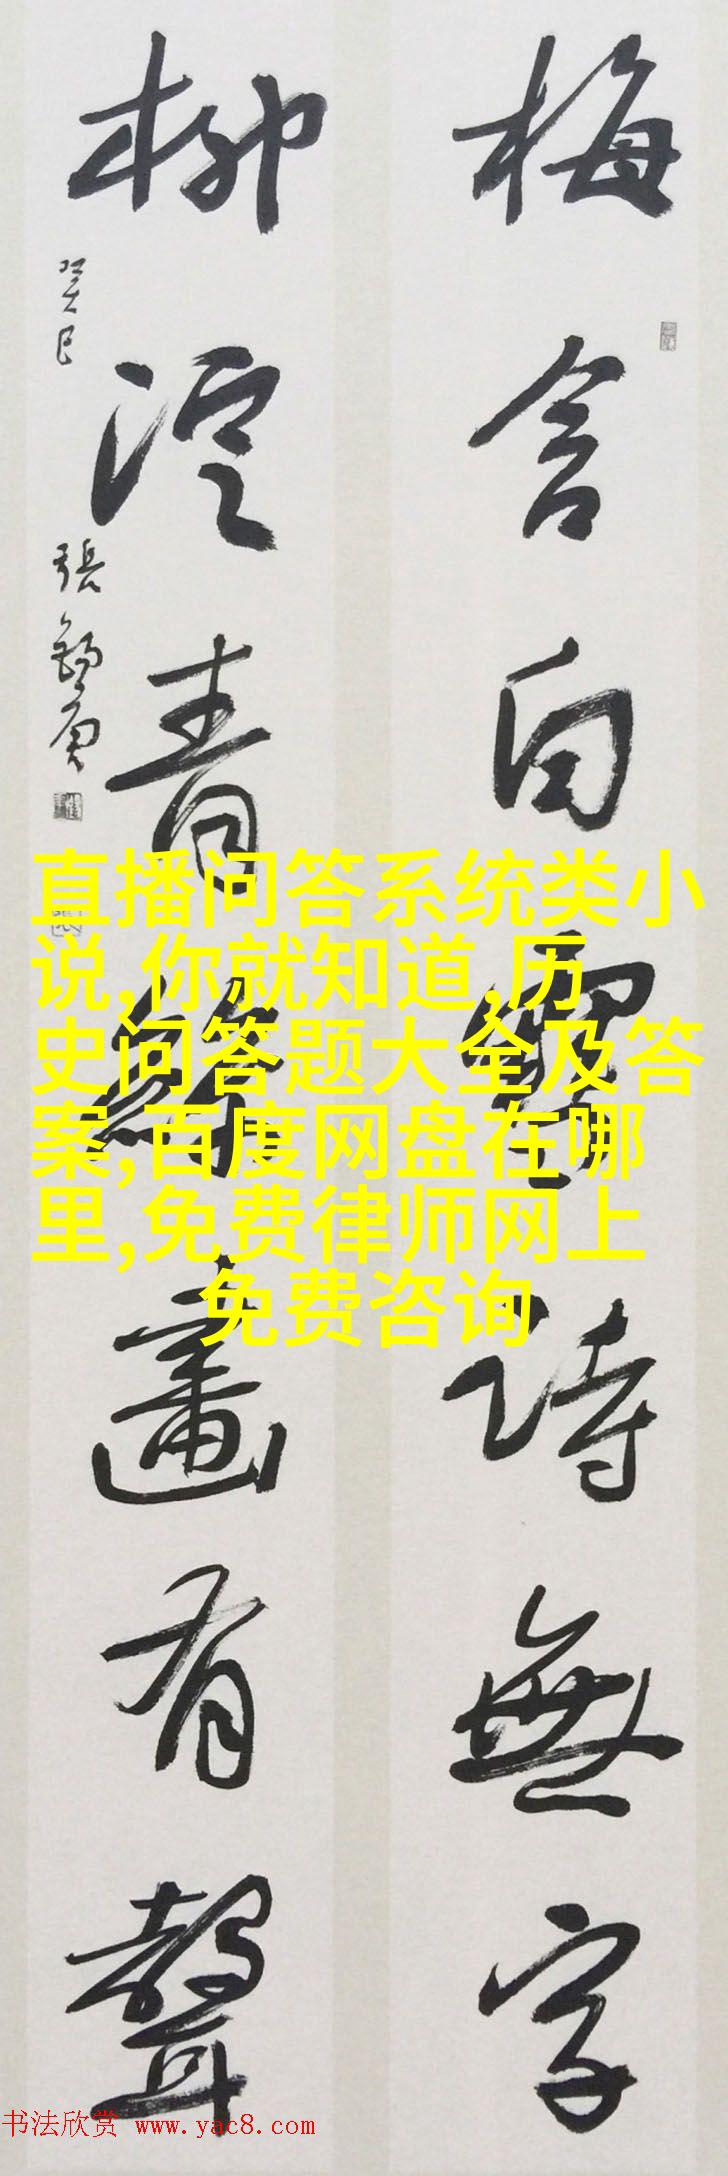 梅含白雪詩無字
柳淀青絲畫有聲
癸巳
張
直播问答系统类小
说,你就知道,历
史问答题大全及答
案,百度网盘在哪
里,免费律师网上
免费咨询
书法欣赏 www.yac8.com